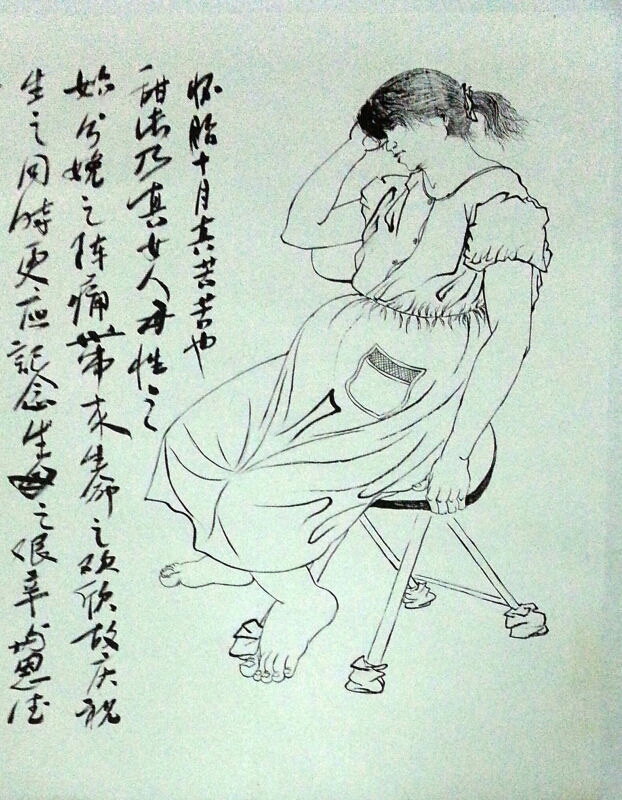 怀胎十月真苦苦也
甜乃真女人母性之
始分娩之阵痛带来生命之欢欣故庆祝
生之同時更应記念生母之艰辛与恩德